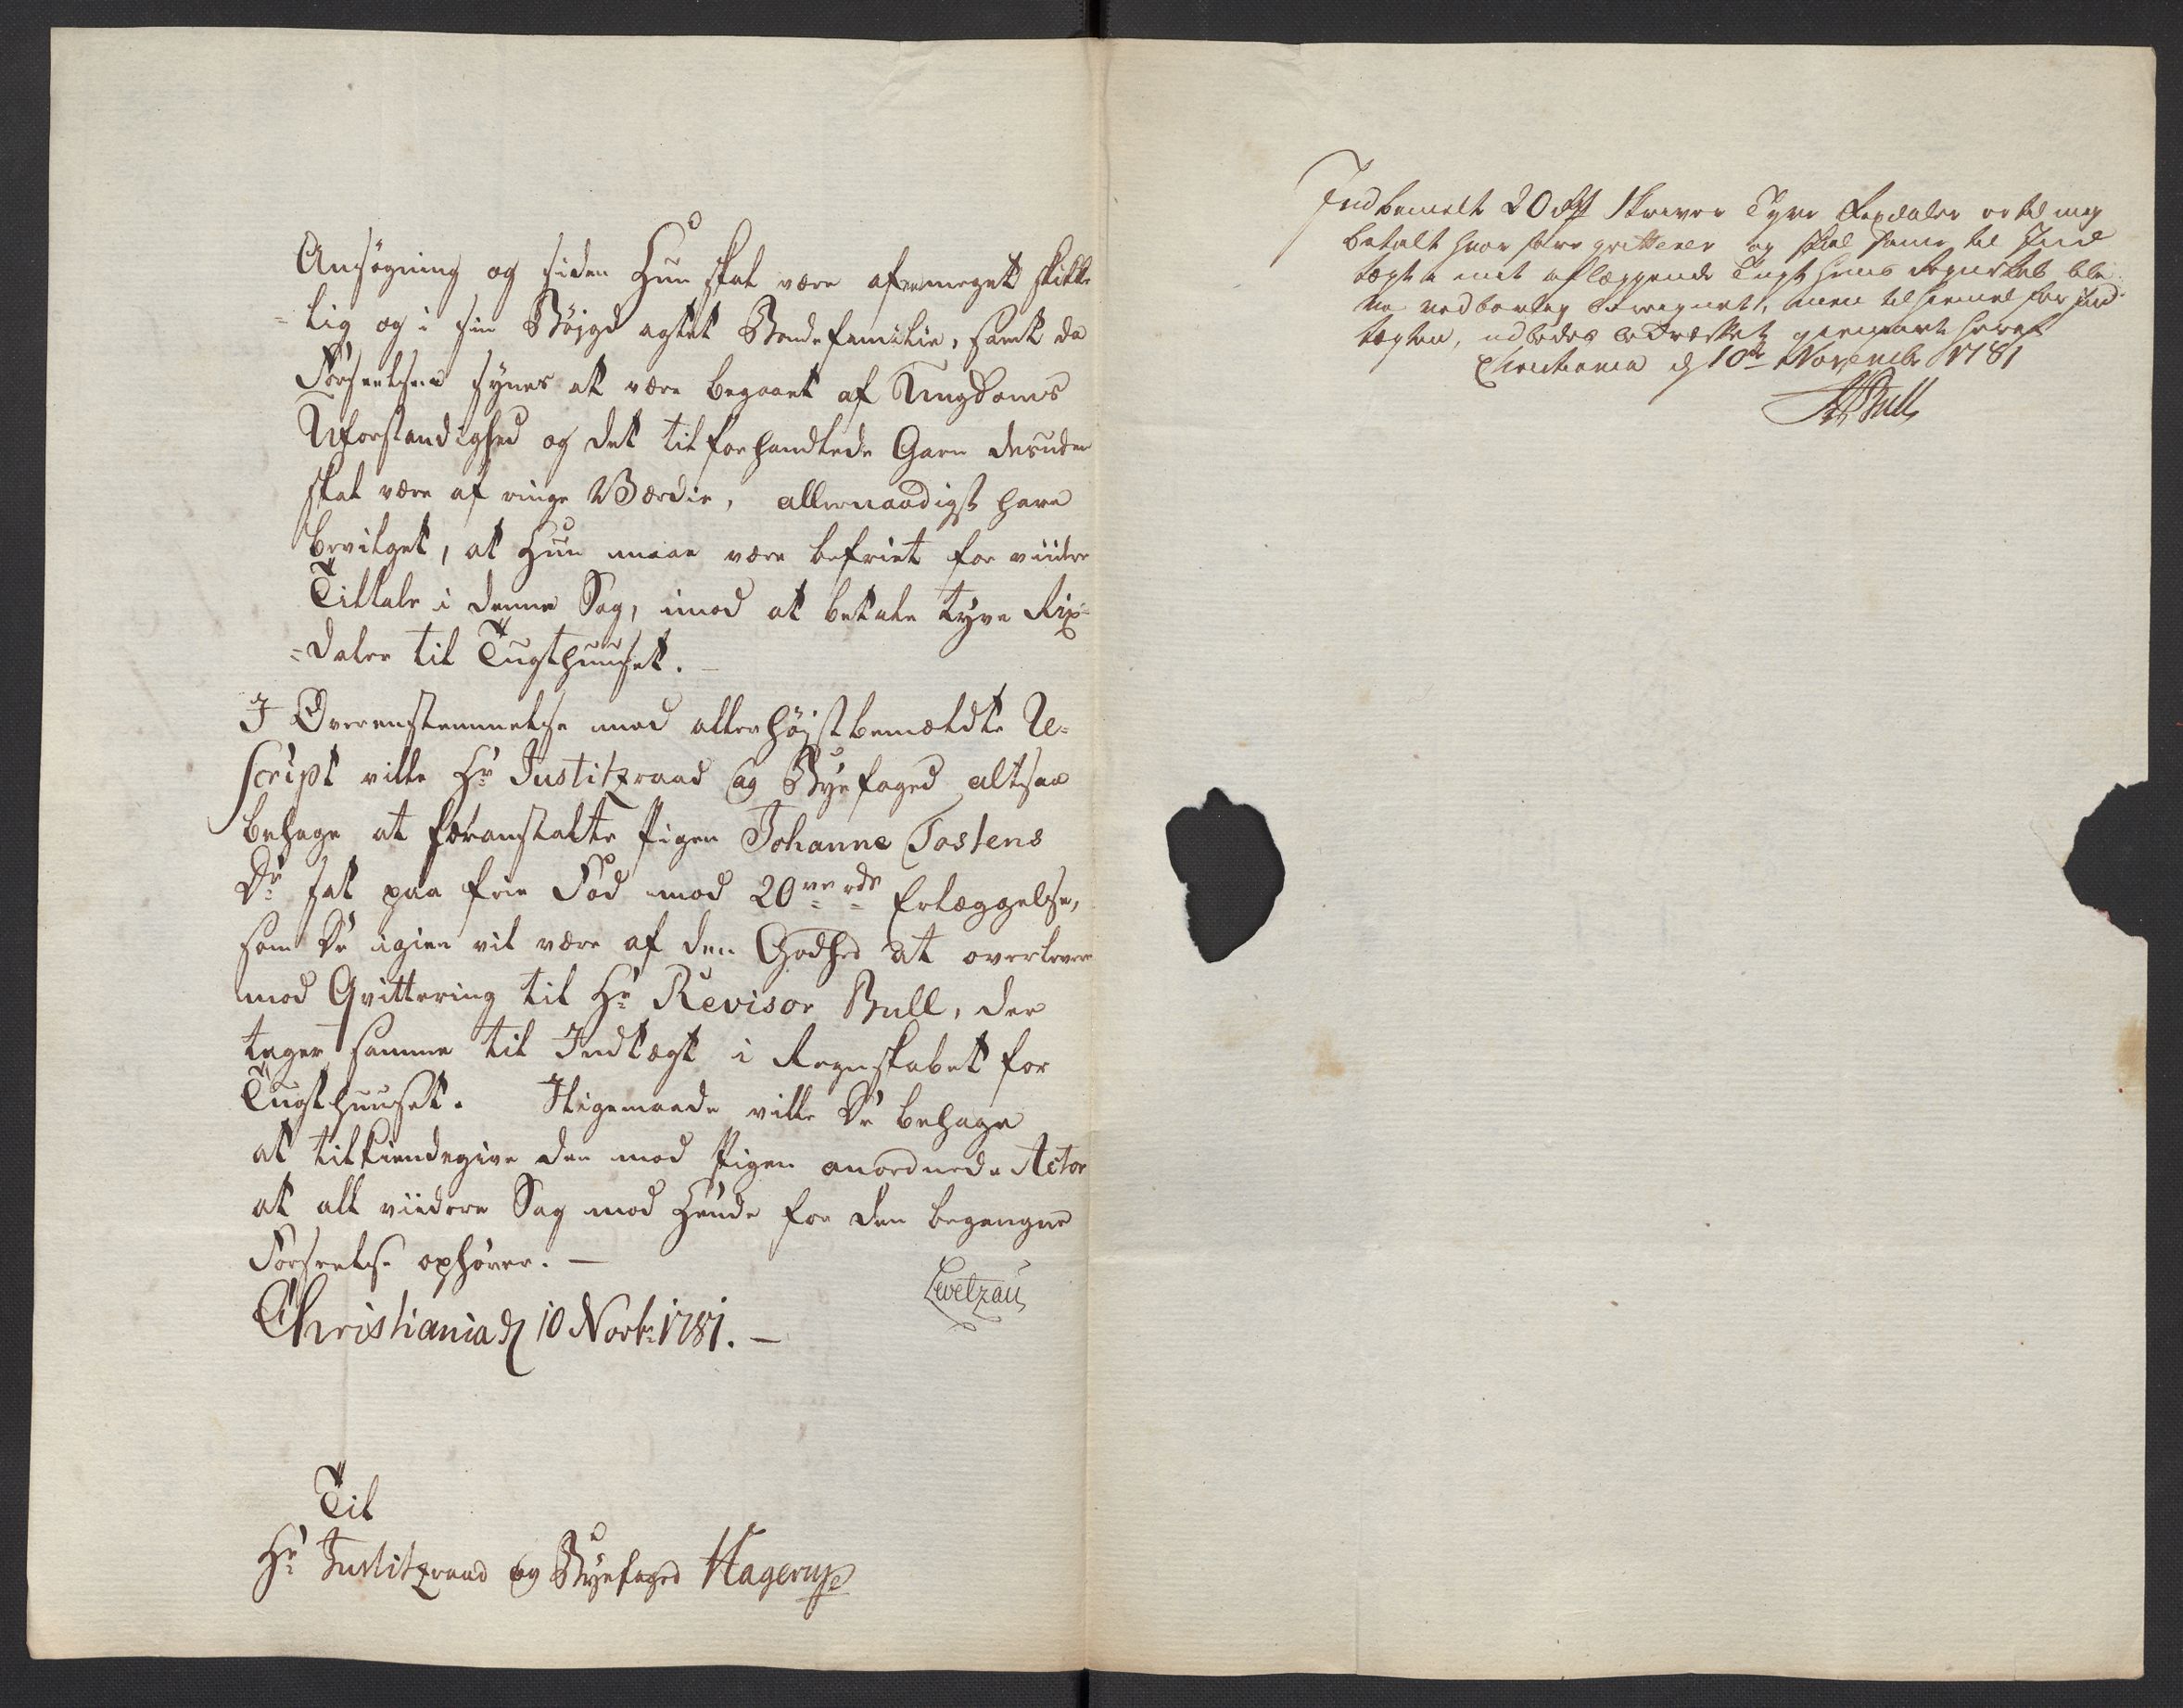 Ansøgning og siden Hun skal være af en meget skikke
=lig og i sin Bøjgd agtet Bondefamilie, samt da
Forseelsen synes at være begaaet af Ungdoms
Uforstandighed og det tilforhandlede Garn desuden
skal være af ringe Værdie, allernaadigst have
bevilget, at Hun maae være befriet for viidere
Tiltale i denne Sag, imod at betale tyve Rix=
=daler til Tugthuuset. —
I Overensstemmelse med allerhøjstbemældte Re=
script ville Hr Justitzraad og Byefoged altsaa
behage at foranstalte Pigen Johanne Tostens
Dr sat paa frie Fod mod 20ve rdr Erlæggelse,
som De igien vil være af den Godhed at overlevere
mod Qvittering til Hr Revisor Bull, der
tager samme til Indtægt i Regnskabet for
Tugthuuset. Ligemaade ville De behage
at tilkiendegive den mod Pigen anordnede Actor
at all viidere Sag mod Hende for den begangne
Forseelse ophører. —
Levetzau
Christiania d 10 Novbr 1781. —
Til
Hr Justitzraad og Byefoged Hagerup
Indbemelte 20 rdr skriver Tyve Rixdaler er til mig
betalt hvorfore qvitterer og skal samme til Ind
tægt i mit aflæggende Tugthuus Regnskab bli
ve vedbørlig beregnet, men til hiemmel for Ind
tægten, udbedes
Christiania d 10de November 1781
Bull